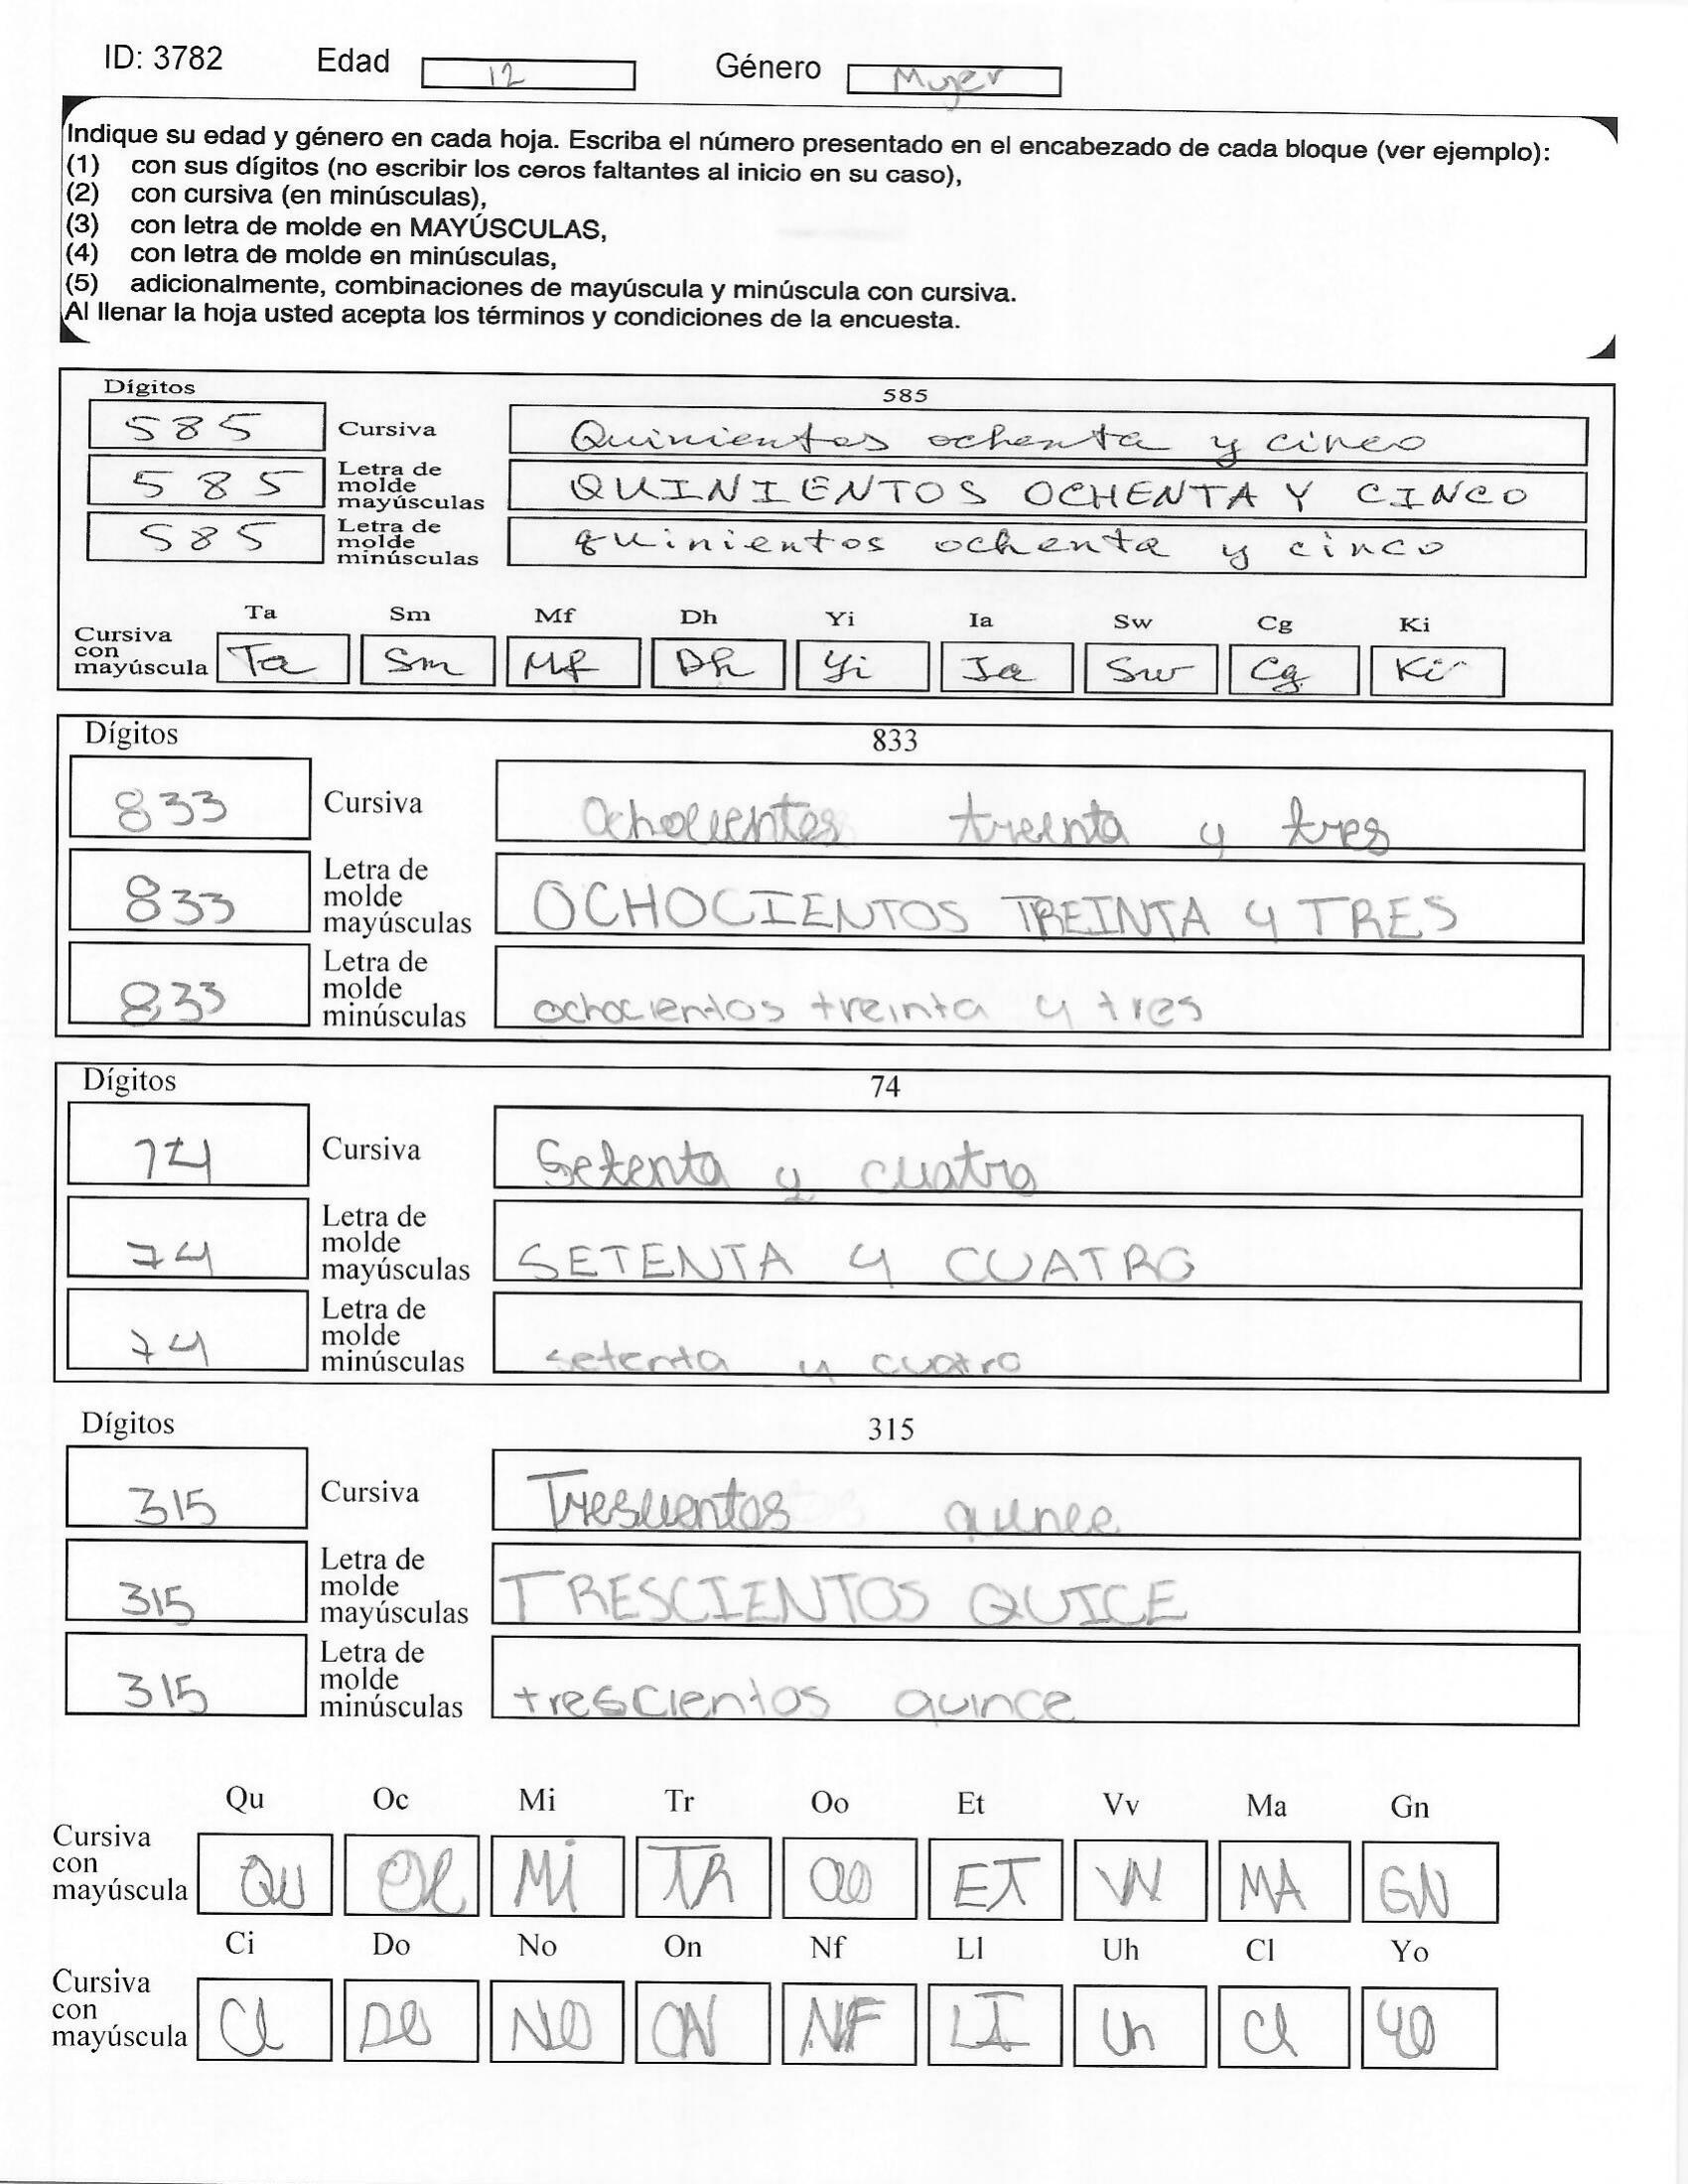 ID: 3782 Edad 12 Género Mujer
Indique su edad y género en cada hoja. Escriba el número presentado en el encabezado de cada bloque (ver ejemplo):
(1) con sus dígitos (no escribir los ceros faltantes al inicio en su caso),
(2) con cursiva (en minúsculas),
(3) con letra de molde en MAYÚSCULAS,
(4) con letra de molde en minúsculas,
(5) adicionalmente, combinaciones de mayúscula y minúscula con cursiva.
Al llenar la hoja usted acepta los términos y condiciones de la encuesta.
Dígitos 585
585 Cursiva Quinientos ochenta y cinco
585 Letra de molde mayúsculas QUINIENTOS OCHENTA Y CINCO
585 Letra de molde minúsculas quinientos ochenta y cinco
Ta Sm Mf Dh Yi Ia Sw Cg Ki
Cursiva con mayúscula Ta Sm Mf Dh Yi Ia Sw Cg Ki
Dígitos 833
833 Cursiva Ochocientos treinta y tres
833 Letra de molde mayúsculas OCHOCIENTOS TREINTA Y TRES
833 Letra de molde minúsculas ochocientos treinta y tres
Dígitos 74
74 Cursiva Setenta y cuatro
74 Letra de molde mayúsculas SETENTA Y CUATRO
74 Letra de molde minúsculas setenta y cuatro
Dígitos 315
315 Cursiva Trescientos quince
315 Letra de molde mayúsculas TRESCIENTOS QUICE
315 Letra de molde minúsculas trescientos quince
Qu Oc Mi Tr Oo Et Vv Ma Gn
Cursiva con mayúscula QU OC Mi TR OO ET VV MA GN
Ci Do No On Nf Ll Uh Cl Yo
Cursiva con mayúscula Ci DO NO ON NF LI Uh Cl YO